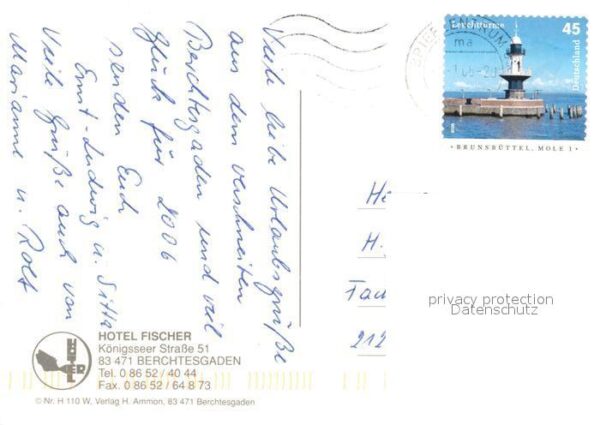 Viele liebe Urlaubsgrüße
aus dem verschneiten
Berchtesgaden und viel
Glück für 2006
senden Euch
Ernst-Ludwig u. Gitta
Viele Grüße auch von
Marianne u. Rolf
Leuchttürme
45
Deutschland
BRIEFZENTRUM
ma
• BRUNSBÜTTEL, MOLE 1 •
H.
212
privacy protection
Datenschutz
HOTEL
HOTEL FISCHER
Königsseer Straße 51
83 471 BERCHTESGADEN
Tel. 0 86 52 / 40 44
Fax. 0 86 52 / 64 8 73
© Nr. H 110 W, Verlag H. Ammon, 83 471 Berchtesgaden